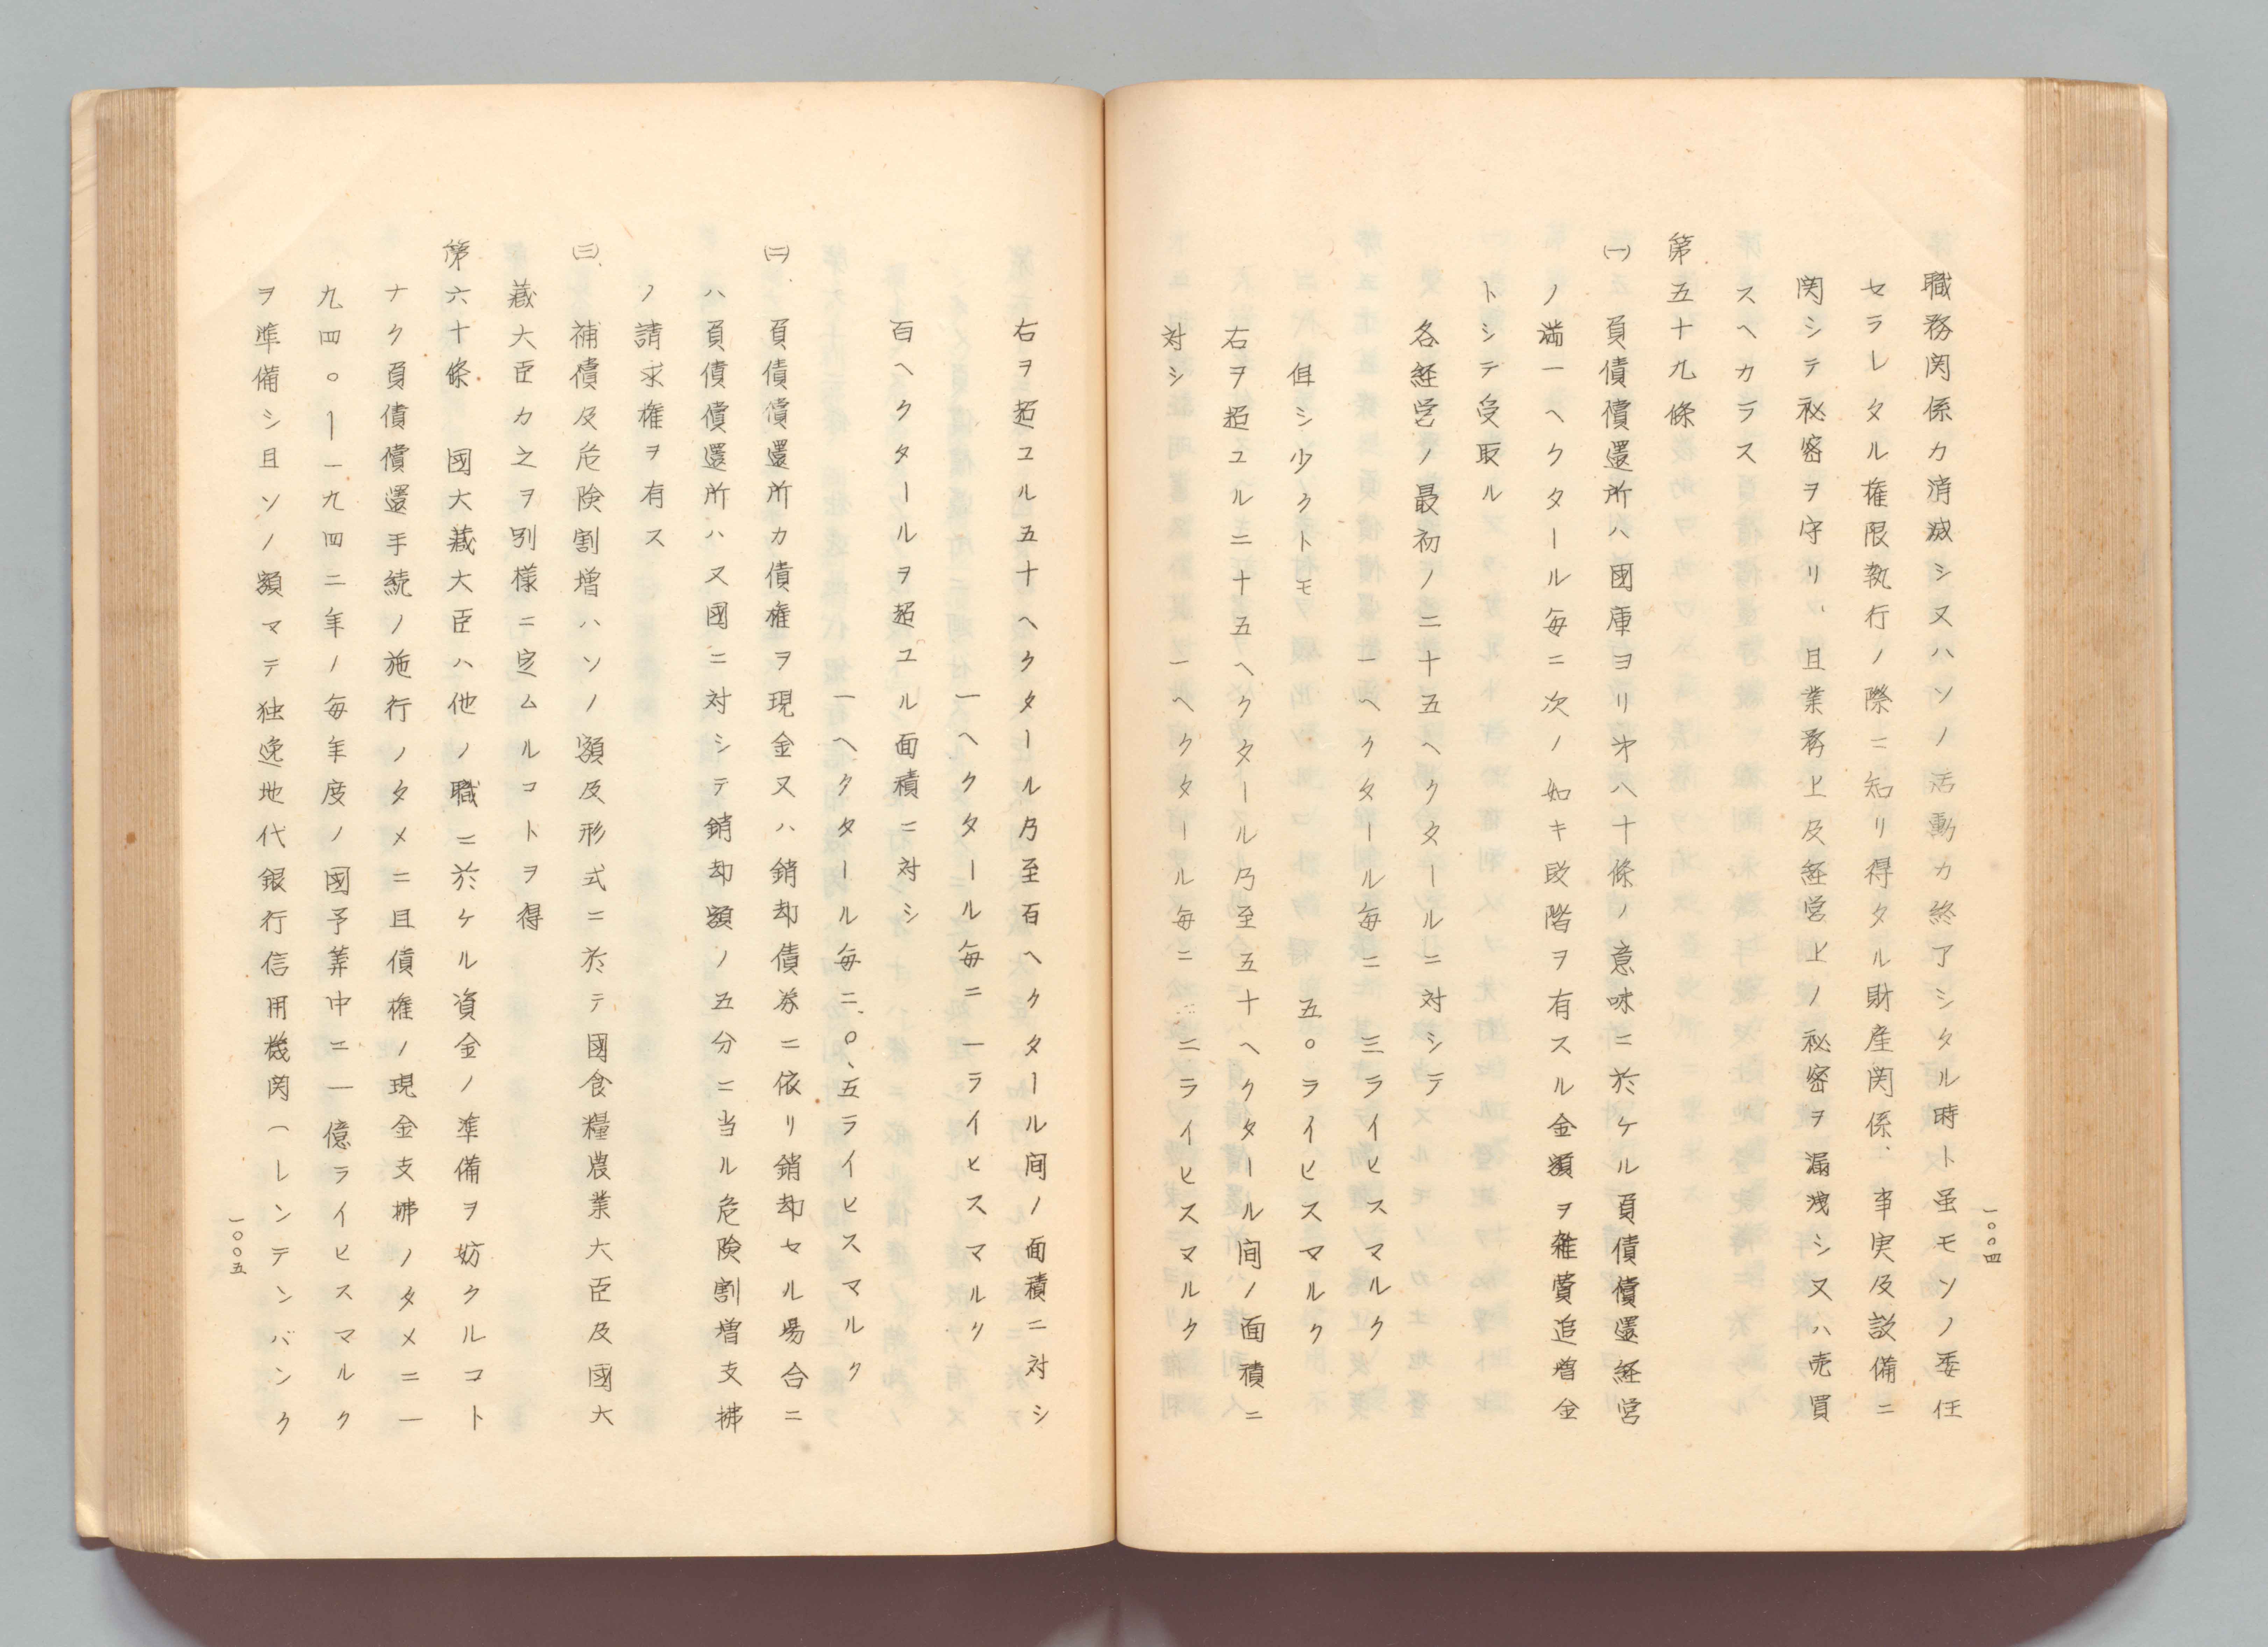 一〇〇四
職務関係カ消滅シ又ハソノ活動カ終了シタル時ト虽モソノ委任
セラレタル権限執行ノ際ニ知リ得タル財産関係、事実及設備ニ
関シテ秘密ヲ守リ、且業務上及経営上ノ秘密ヲ漏洩シ又ハ売買
スヘカラス
第五十九條
(一) 負債償還所ハ國庫ヨリ第八十條ノ意味ニ於ケル負債償還経営
ノ満一ヘクタール毎ニ次ノ如キ段階ヲ有スル金額ヲ雑費追増金
トシテ受取ル
各経営ノ最初ノ二十五ヘクタールニ対シテ
一ヘクタール毎ニ 三ライヒスマルク
但シ少クトモ 五〇ライヒスマルク
右ヲ超ユル二十五ヘクタール乃至五十ヘクタール間ノ面積ニ
対シ 一ヘクタール毎ニ 二ライヒスマルク
右ヲ超ユル五十ヘクタール乃至百ヘクタール間ノ面積ニ対シ
一ヘクタール毎ニ一ライヒスマルク
百ヘクタールヲ超ユル面積ニ対シ
一ヘクタール毎ニ〇、五ライヒスマルク
(二)、負債償還所カ債権ヲ現金又ハ銷却債券ニ依リ銷却セル場合ニ
ハ負債償還所ハ又國ニ対シテ銷却額ノ五分ニ当ル危険割増支拂
ノ請求権ヲ有ス
(三)、補償及危険割増ハソノ額及形式ニ於テ國食糧農業大臣及國大
蔵大臣カ之ヲ別様ニ定ムルコトヲ得
第六十條 國大蔵大臣ハ他ノ職ニ於ケル資金ノ準備ヲ妨クルコト
ナク負債償還手続ノ施行ノタメニ且債権ノ現金支拂ノタメニ一
九四〇ー一九四二年ノ毎年度ノ國予算中ニ一億ライヒスマルク
ヲ準備シ且ソノ額マテ独逸地代銀行信用機関(レンテンバンク
一〇〇五